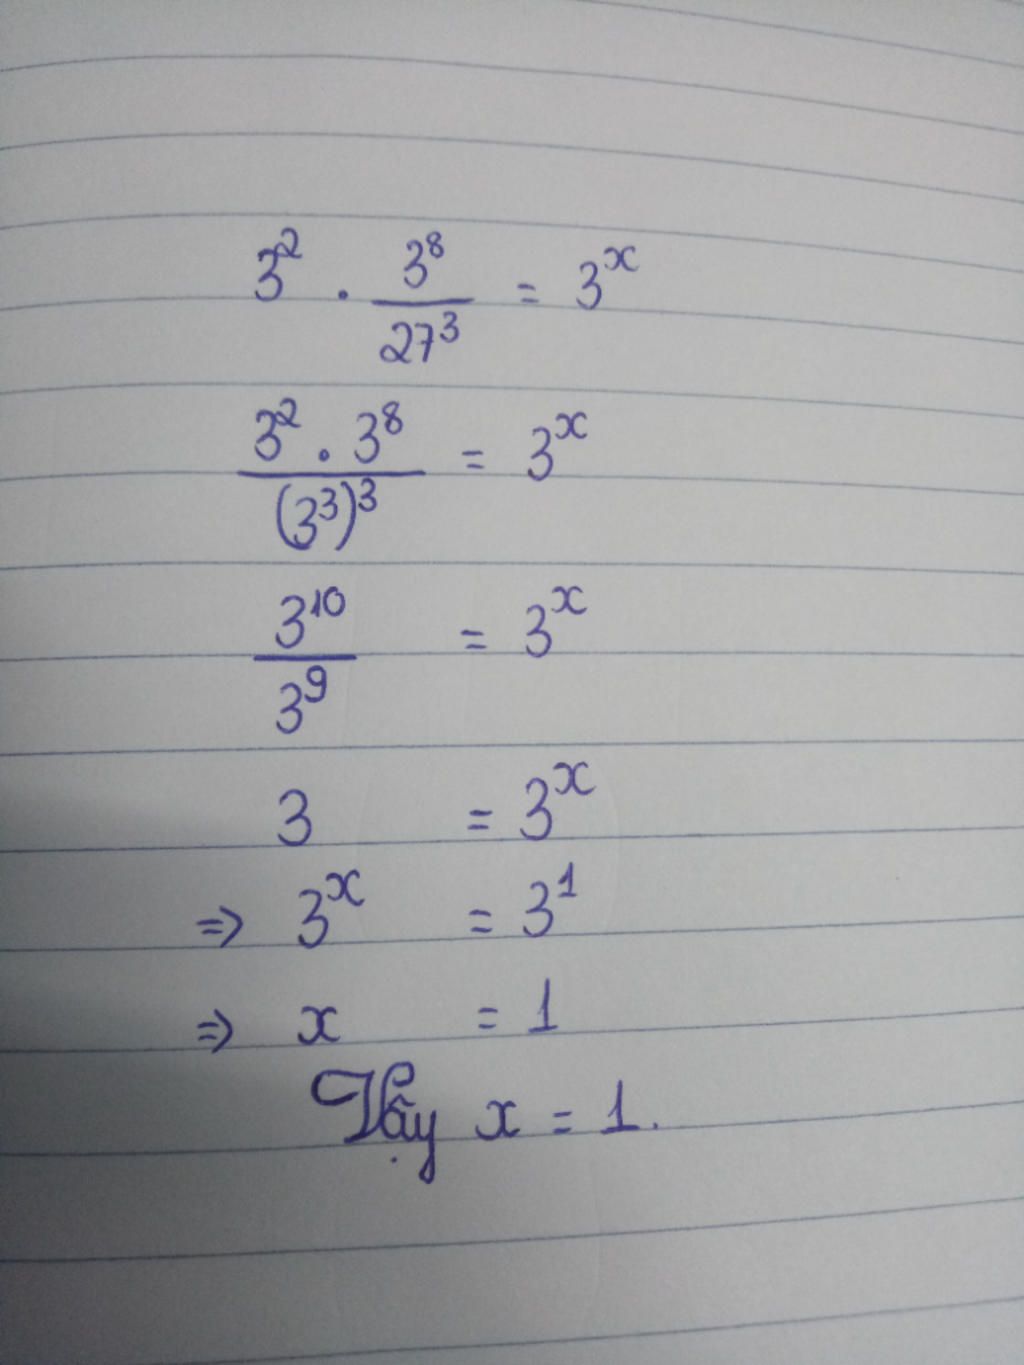 3² . 3⁸/27³ = 3ˣ
3² . 3⁸/(3³)³ = 3ˣ
3¹⁰/3⁹ = 3ˣ
3 = 3ˣ
⇒ 3ˣ = 3¹
⇒ x = 1
Vậy x = 1.